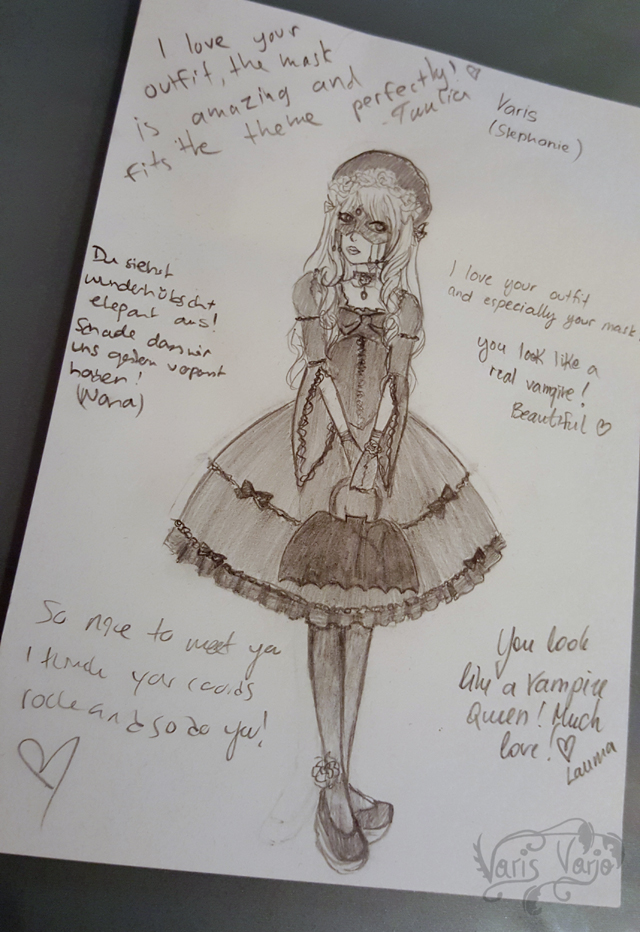 I love your
outfit, the mask
is amazing and
fits the theme perfectly! ♡
Varis
(Stephanie)
Du siehst
wunderhübscht
elegant aus!
Schade dass wir
uns gestern verpasst
haben!
(Nana)
I love your outfit
and especially your mask.
you look like a
real vampire!
Beautiful ♡
So nice to meet you
I think your coords
rock and so do you!
♡
You look
like a Vampire
Queen! Much
love! ♡
Lauma
Varis Varjo